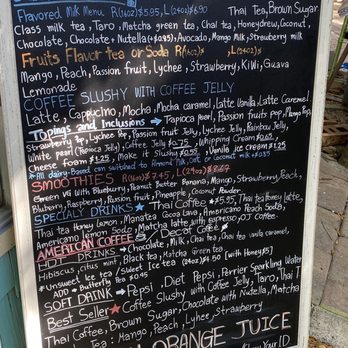 Flavored Milk Menu R(16oz) $5.95, L(24oz) $6.90
Thai Tea, Brown Sugar
Class milk tea, Taro, Matcha green tea, Chai tea, Honeydew, Coconut,
Chocolate, Chocolate + Nutella (+$0.95), Avocado, Mango Milk, Strawberry milk
Fruits Flavor tea or Soda R(16oz) $ L(24oz) $
Mango, Peach, Passion fruit, Lychee, Strawberry, Kiwi, Guava
Lemonade
COFFEE SLUSHY WITH COFFEE JELLY
Latte, Cappucino, Mocha, Mocha caramel, Latte Vanilla, Latte Caramel
Topings and Inclusions → Tapioca pearl, Passion fruits pop, Mango Pop,
Strawberry Pop, Lychee Pop, Passion fruit Jelly, Lychee Jelly, Rainbow Jelly,
White pearl (Tapioca Jelly), Coffee Jelly $0.75 Whipping Cream $0.65
Cheese foam $1.25 Make it Slushy $0.55, Vanilla ice cream $1.25
All dairy-Based can subtituted to Almond Milk, Oat or Coconut milk
SMOOTHIES R(16oz) $7.45, L(24oz)
with Blueberry, Peanut Butter Banana, Mango, Strawberry, Peach,
Blueberry, Raspberry, Passion Fruits, Pineapple, Coconut Powder
SPECIALY DRINKS → Thai Coffee $5.95, Thai Tea Honey latte,
Thai tea Honey Lemon, Manatea Cocoa Lava, Americano Peach Soda,
Americano Lemon Soda, Matcha latte with espresso, OJ Coffee
AMERICAN COFFEE / Decaf Coffee
HOT DRINKS → Chocolate, Milk, Chai Tea, Chai tea vanilla, caramel,
Hibiscus, citus mint, Black tea, Matcha Green tea
Unsweet Ice tea / Sweet Ice tea (24oz) $4.50 (with Honey $5)
ADD → Butterfly Pea $0.45
SOFT DRINK → Pepsi, Diet Pepsi, Perrier Sparkling Water
Best Seller → Coffee Slushy with Coffee Jelly, Taro, Thai T
Thai Coffee, Brown Sugar, Chocolate with Nutella, Matcha
Tea: Mango, Peach, Lychee, Strawberry
ORANGE JUICE
ID